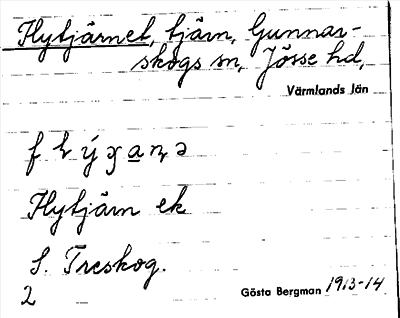 Flytjärnet, tjärn, Gunnar-
skogs sn, Jösse hd,
Värmlands län
Flytjärn ek
S. Treskog.
2
Gösta Bergman 1913-14